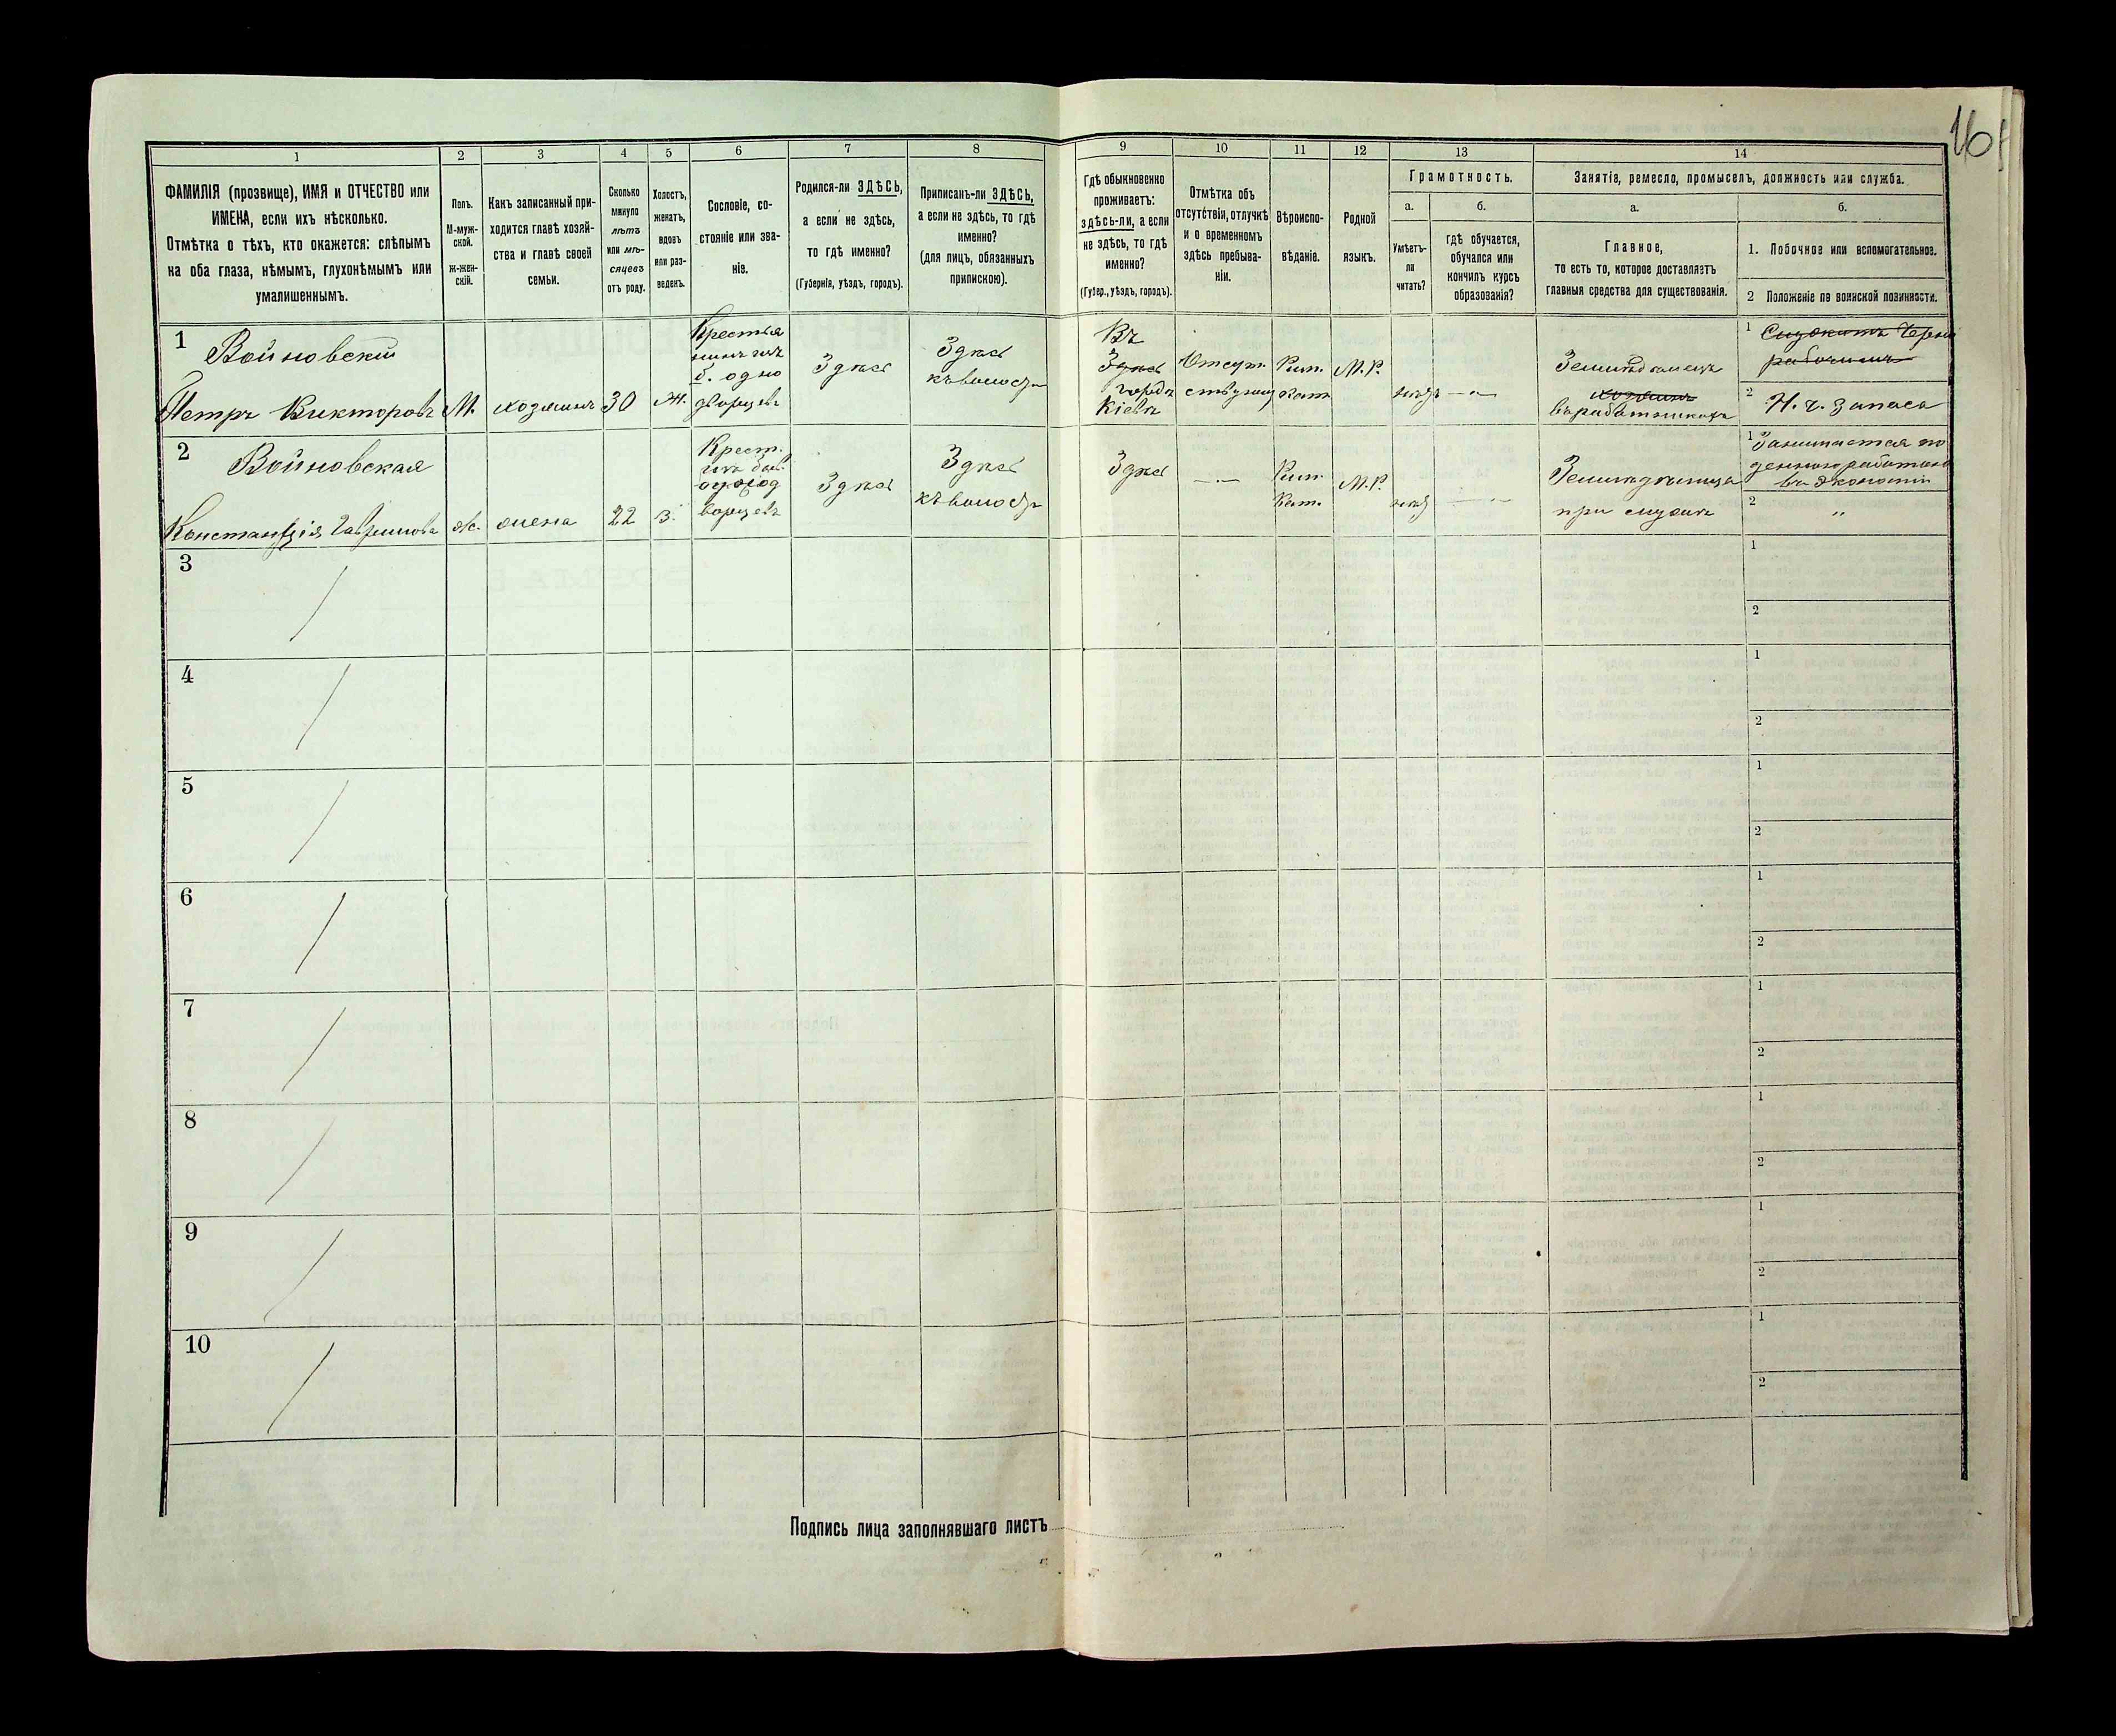 16
1 2 3 4 5 6 7 8 9 10 11 12 13 14
ФАМИЛІЯ (прозвище), ИМЯ и ОТЧЕСТВО или
ИМЕНА, если ихъ нѣсколько.
Отмѣтка о тѣхъ, кто окажется: слѣпымъ
на оба глаза, нѣмымъ, глухонѣмымъ или
умалишеннымъ.
Полъ.
М-муж-
ской.
ж-жен-
скій.
Какъ записанный при-
ходится главѣ хозяй-
ства и главѣ своей
семьи.
Сколько
минуло
лѣтъ
или мѣ-
сяцевъ
отъ роду.
Холостъ,
женатъ,
вдовъ
или раз-
веденъ.
Сословіе, со-
стояніе или зва-
ніе.
Родился-ли ЗДѢСЬ,
а если не здѣсь,
то гдѣ именно?
(Губернія, уѣздъ, городъ).
Приписанъ-ли ЗДѢСЬ,
а если не здѣсь, то гдѣ
именно?
(для лицъ, обязанныхъ
припискою).
Гдѣ обыкновенно
проживаетъ:
здѣсь-ли, а если
не здѣсь, то гдѣ
именно?
(Губер., уѣздъ, городъ).
Отмѣтка объ
отсутствіи, отлучкѣ
и о временномъ
здѣсь пребыва-
ніи.
Вѣроиспо-
вѣданіе.
Родной
языкъ.
Грамотность.
а.
Умѣетъ-
ли
читать?
б.
гдѣ обучается,
обучался или
кончилъ курсъ
образованія?
Занятіе, ремесло, промыселъ, должность или служба.
а.
Главное,
то есть то, которое доставляетъ
главныя средства для существованія.
б.
1. Побочное или вспомогательное.
2 Положеніе по воинской повинности.
1
Войновскій
Петръ Викторовъ
М.
хозяинъ
30
Ж.
Крестья
нинъ изъ
б. одно
дворцевъ
Здѣсь
Здѣсь
къ волости
Въ
Здѣсь
городѣ
Кіевѣ
Отсут
ствуетъ
Рим.
кат
М.Р.
нѣтъ
—
Земледѣлецъ
хозяинъ
1 Служитъ Черно
рабочимъ
2 Н. ч. запаса
2
Войновская
Констанція Гаврилова
ж.
жена
22
з.
Крест.
изъ быв.
однод
ворцевъ
Здѣсь
Здѣсь
къ волости
Здѣсь
—
Рим.
Кат.
М.Р.
нѣтъ
—
Земледѣлица
при мужѣ
1 Занимается по
денною работою
въ экономіи
2 „
3 1
2
4 1
2
5 1
2
6 1
2
7 1
2
8 1
2
9 1
2
10 1
2
Подпись лица заполнявшаго листъ